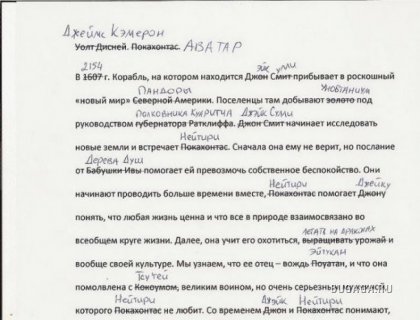 Джеймс Кэмерон
Уолт Дисней. Покахонтас. АВАТАР
2154 Джэйк Сулли
В 1607 г. Корабль, на котором находится Джон Смит прибывает в роскошный
Пандоры Унобтаниум
«новый мир» Северной Америки. Поселенцы там добывают золото под
Полковника Куоритча Джэйк Сулли
руководством губернатора Ратклиффа. Джон Смит начинает исследовать
Нейтири
новые земли и встречает Покахонтас. Сначала она ему не верит, но послание
Дерева Душ
от Бабушки Ивы помогает ей превозмочь собственное беспокойство. Они
Нейтири Джейку
начинают проводить больше времени вместе, Покахонтас помогает Джону
понять, что любая жизнь ценна и что все в природе взаимосвязано во
летать на драконах
всеобщем круге жизни. Далее, она учит его охотиться, выращивать урожай и
Эйтукан
вообще своей культуре. Мы узнаем, что ее отец – вождь Поуатан, и что она
Тсу'тей
помолвлена с Кокоумом, великим воином, но очень серьезным мужчиной,
Нейтири Джэйк Нейтири
которого Покахонтас не любит. Со временем Джон и Покахонтас понимают,